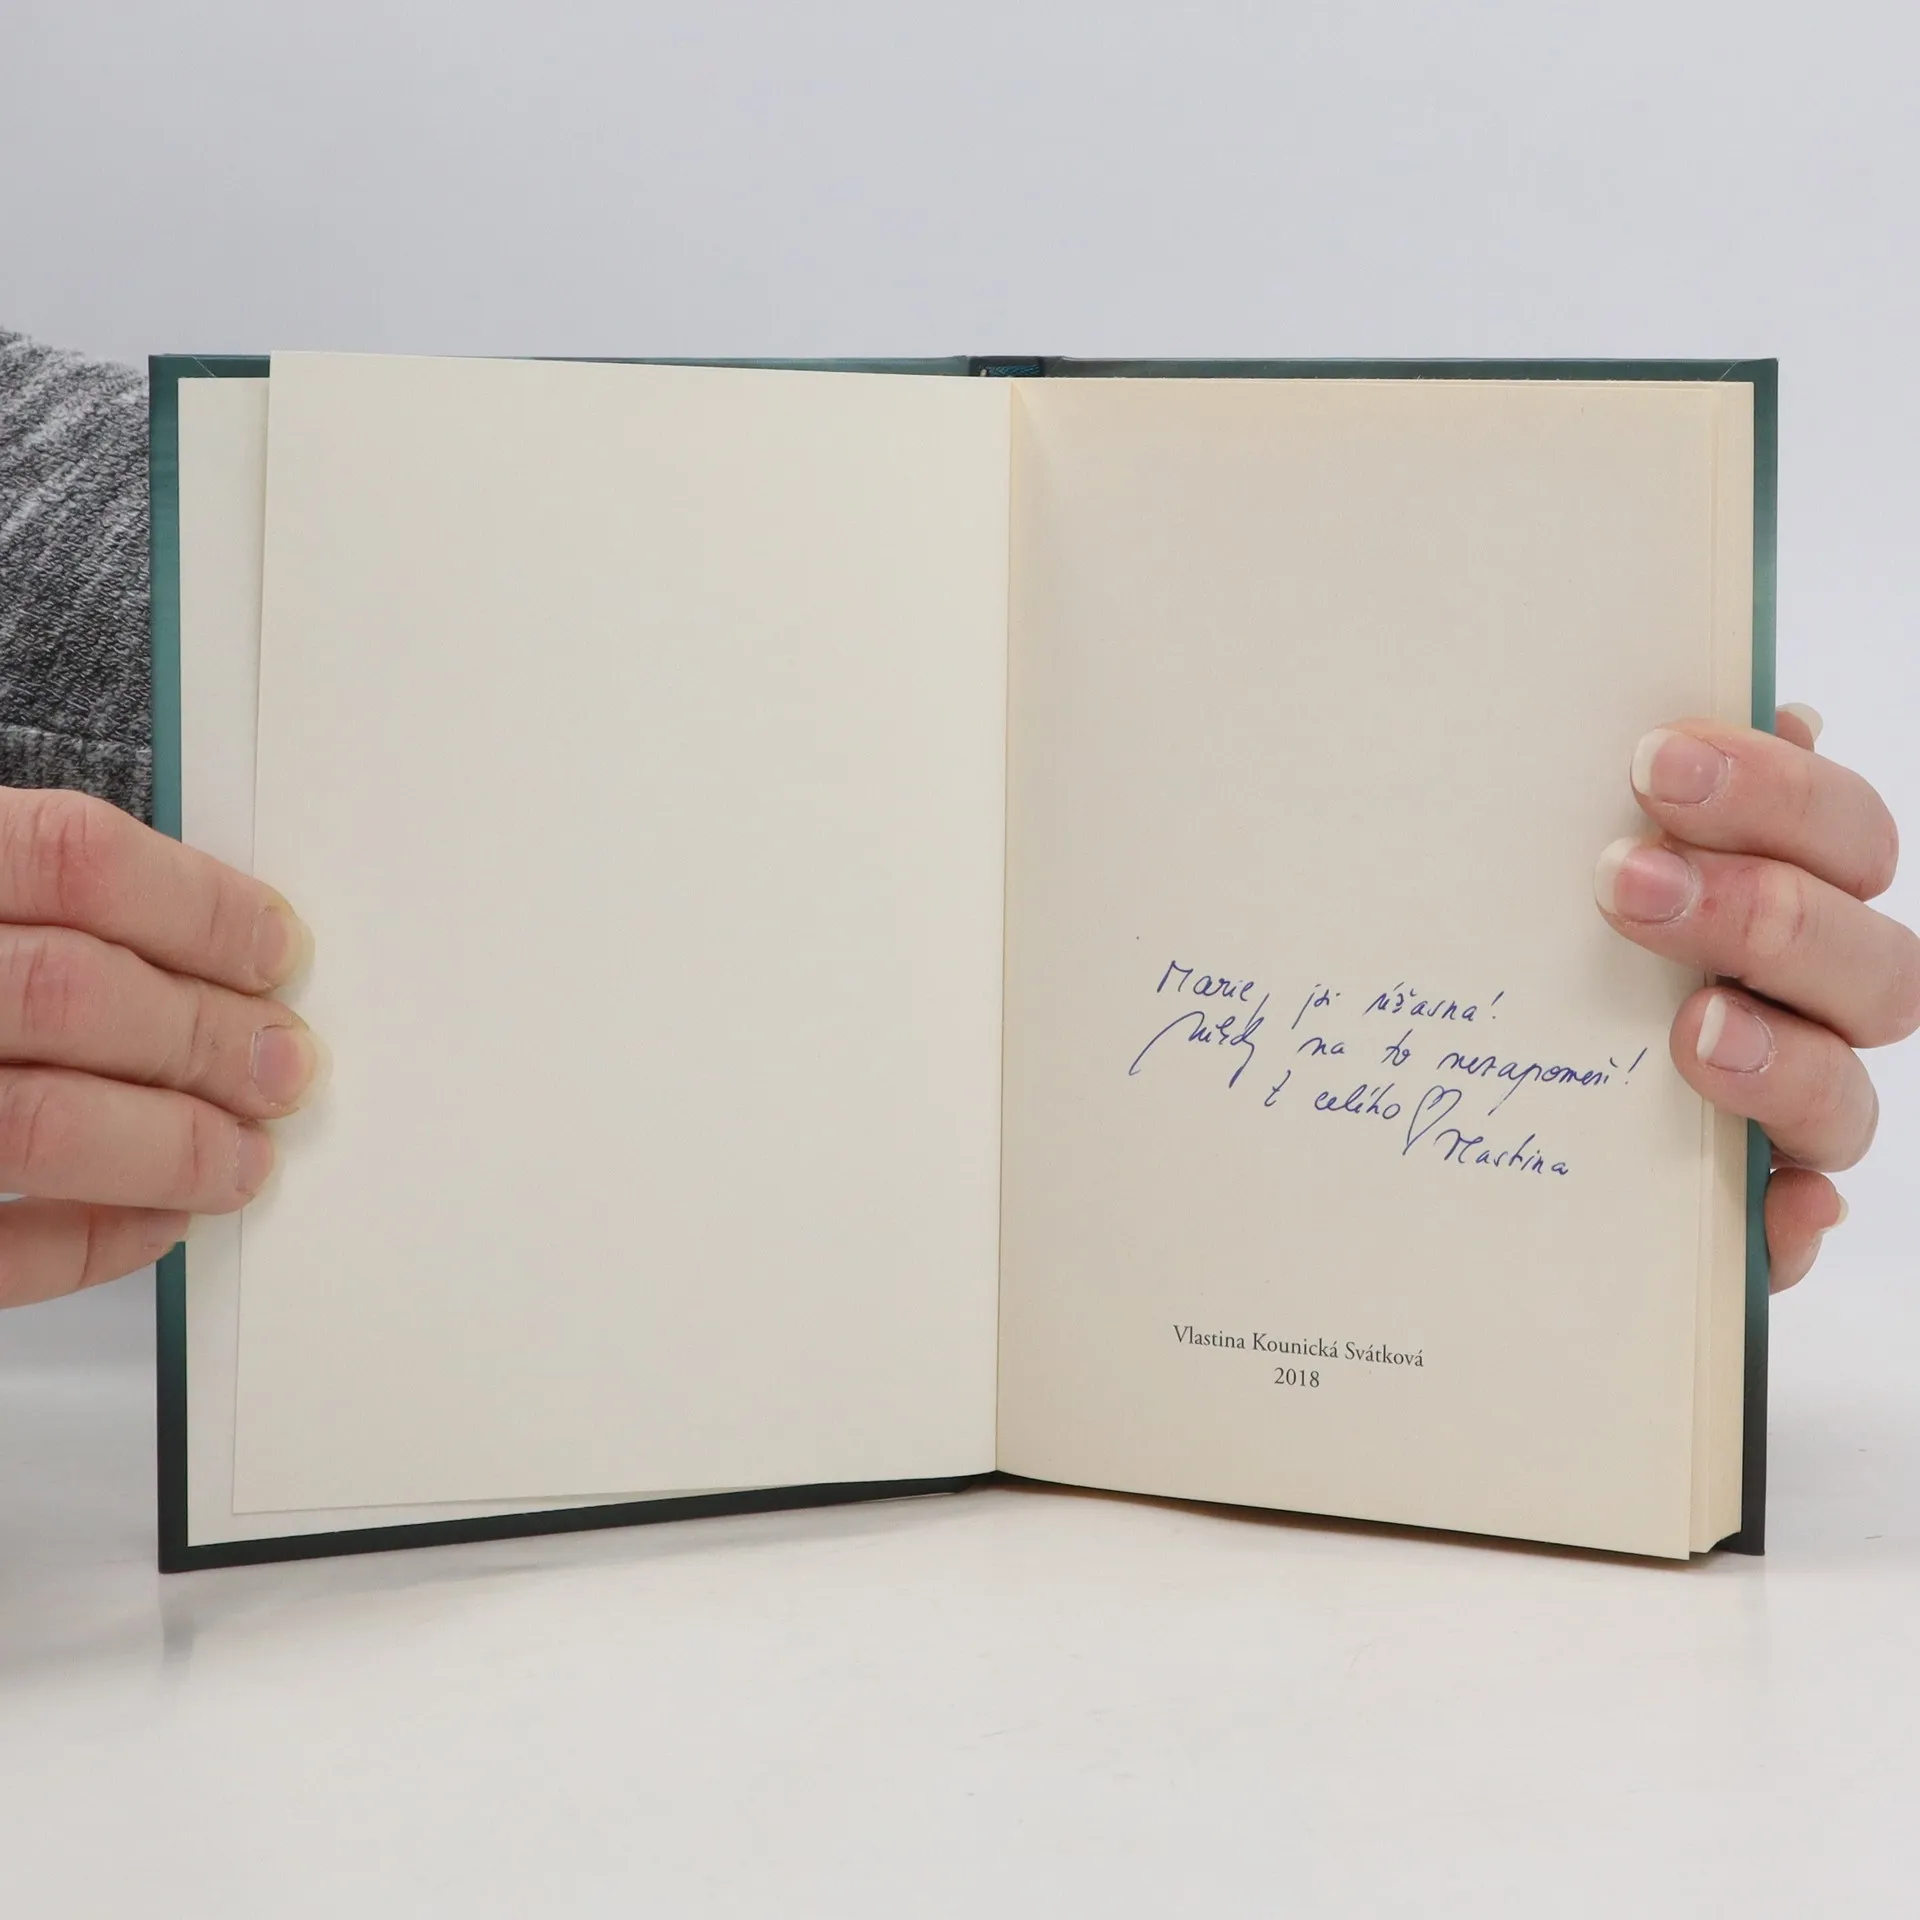 Marie, jsi úžasná!
Nikdy na to nezapomeň!
Z celého ♡ Vlastina
Vlastina Kounická Svátková
2018